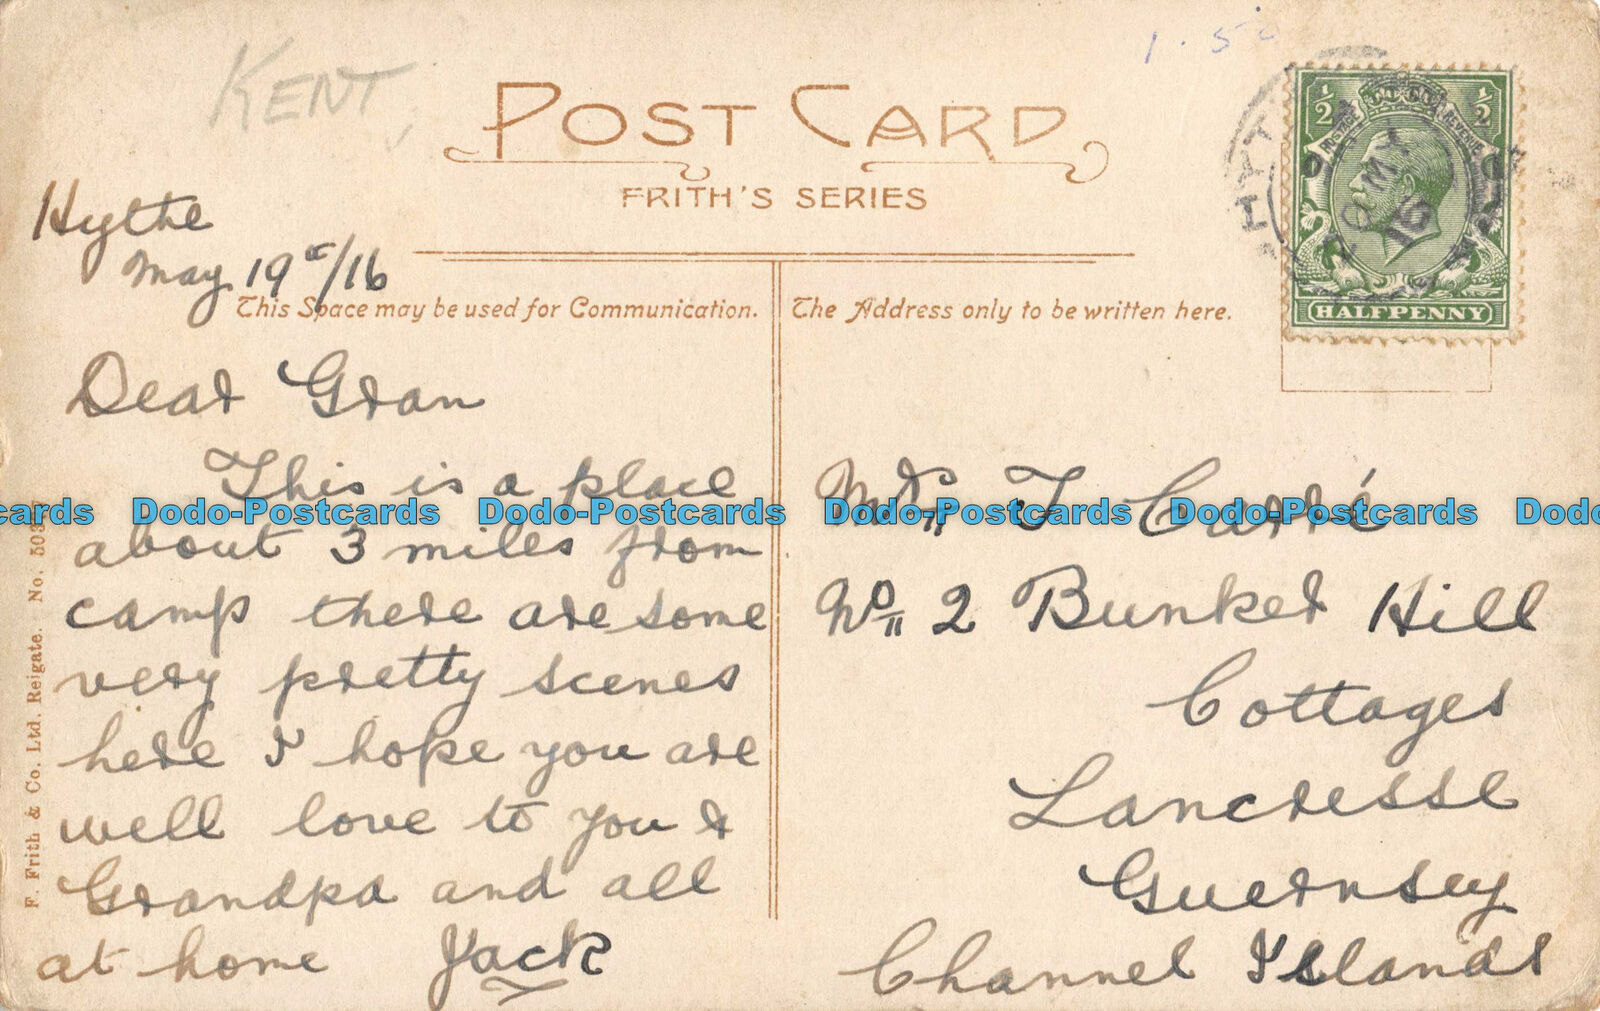 KENT
1.50
POST CARD
FRITH'S SERIES
Hythe
May 19th/16
This Space may be used for Communication.
The Address only to be written here.
1/2 1/2
POSTAGE REVENUE
HALFPENNY
HYTHE
20 MY
16
Dear Gran
This is a place
about 3 miles from
camp there are some
very pretty scenes
here I hope you are
well love to you &
Grandpa and all
at home Jack
Mrs T Carré
No 2 Bunker Hill
Cottages
Lancresse
Guernsey
Channel Islands
F. Frith & Co. Ltd. Reigate. No.
Dodo-Postcards Dodo-Postcards Dodo-Postcards Dodo-Postcards